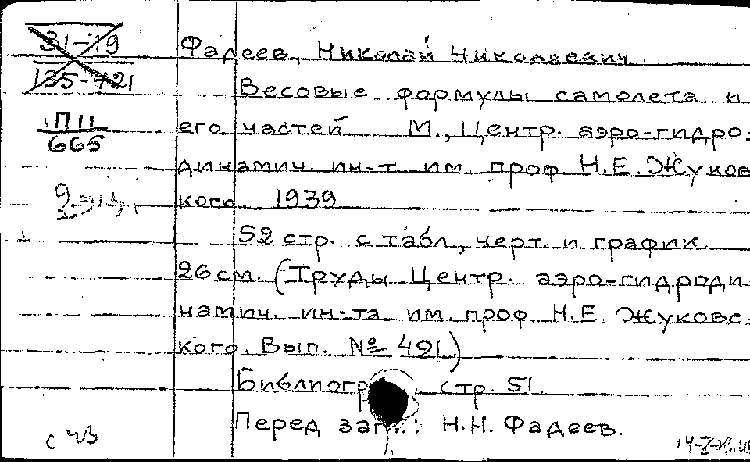 31-19
135-721
П11
665
Фадеев, Николай Николаевич
Весовые формулы самолета и
его частей М., Центр. аэро-гидро-
динамич. ин-т им. проф Н.Е. Жуков
ского 1939
52 стр. с табл, черт. и график.
26 см. (Труды Центр. аэро-гидроди
намич. ин-та им. проф Н.Е. Жуковс-
кого. Вып. № 491)
стр. 51.
Перед Н.Н. Фадеев.